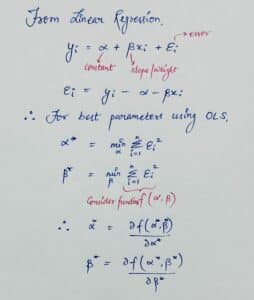 From Linear Regression.
yi = α + βxi + Ei → error
constant slope/weight
Ei = yi - α - βxi
∴ For best parameters using OLS.
α* = min α n Σ i=1 Ei²
β* = min β n Σ i=1 Ei²
Consider function f(α,β)
∴ α* = ∂f(α*,β*) / ∂α*
β* = ∂f(α*,β*) / ∂β*